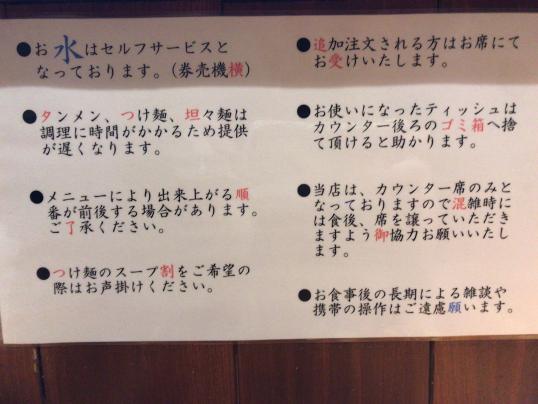 ●お水はセルフサービスと
なっております。(券売機横)
●タンメン、つけ麺、坦々麺は
調理に時間がかかるため提供
が遅くなります。
●メニューにより出来上がる順
番が前後する場合があります。
ご了承ください。
●つけ麺のスープ割をご希望の
際はお声掛けください。
●追加注文される方はお席にて
お受けいたします。
●お使いになったティッシュは
カウンター後ろのゴミ箱へ捨
て頂けると助かります。
●当店は、カウンター席のみと
なっておりますので混雑時に
は食後、席を譲っていただき
ますよう御協力お願いいたし
ます。
●お食事後の長期による雑談や
携帯の操作はご遠慮願います。